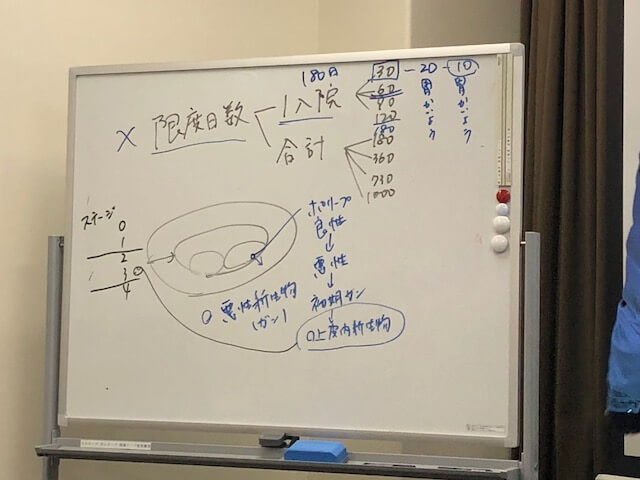 180日
× 限度日数
1入院
30 - 20 - 10
60
90
120
180
胃がん
胃がん
合計
180
360
730
1000
ステージ
0
1
2
3
4
ポリープ
良性
↓
悪性
↓
初期ガン
↓
上皮内新生物
悪性新生物
(ガン)